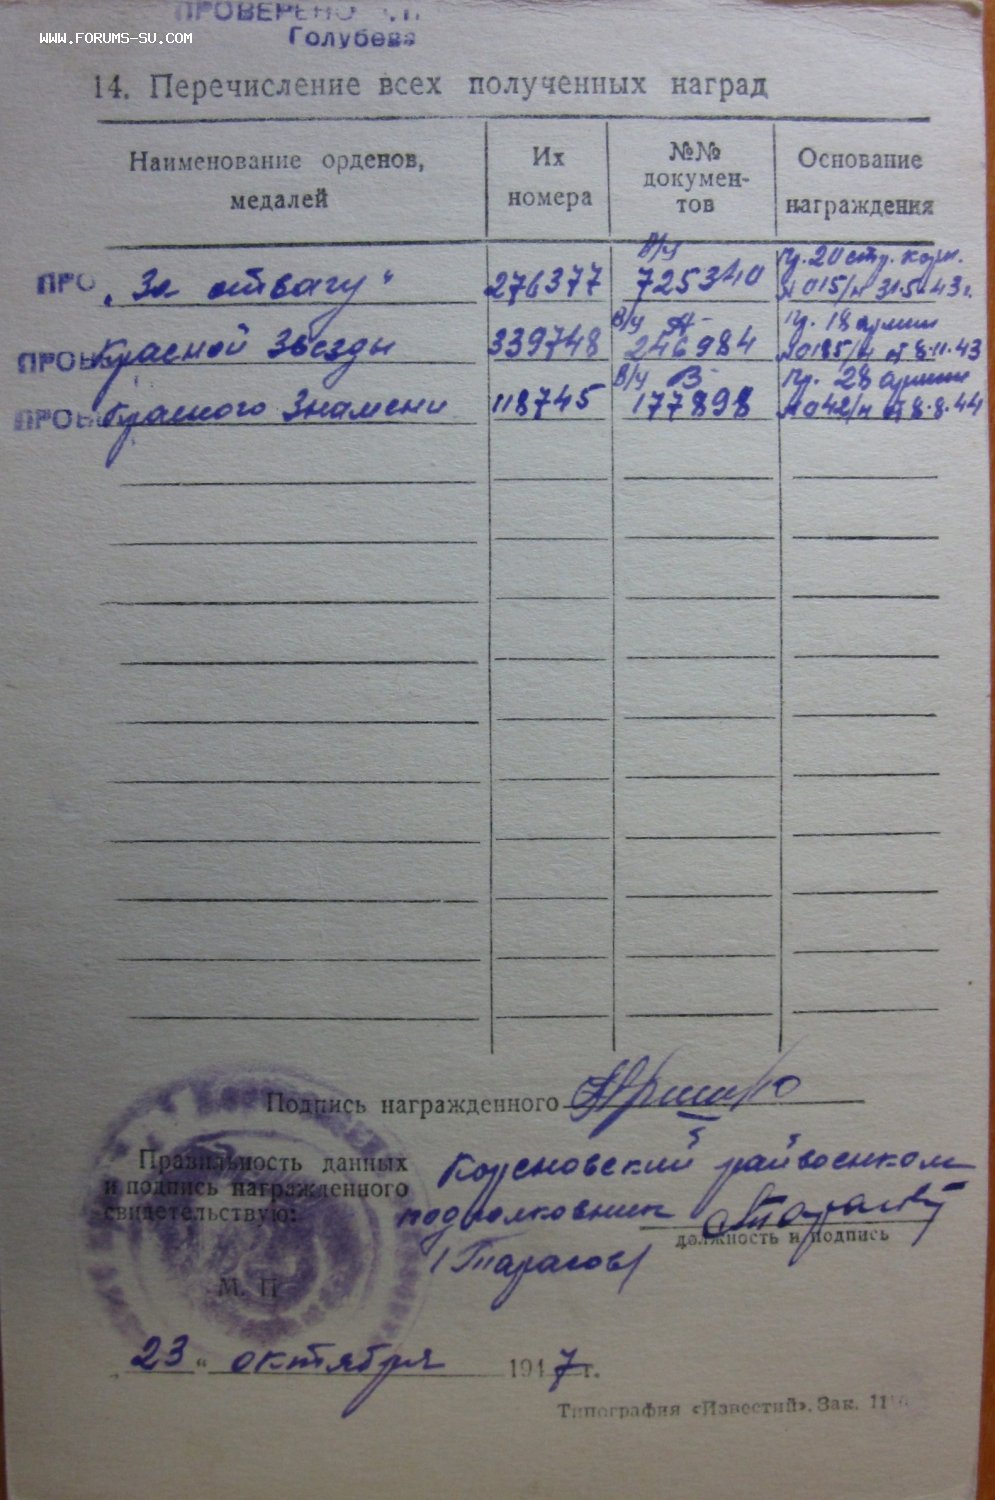 ПРОВЕРЕНО
WWW.FORUMS-SU.COM
Голубева
14. Перечисление всех полученных наград
Наименование орденов, медалей
Их номера
№№ докумен-тов
Основание награждения
ПРО „За отвагу“ 276377 в/ч 725340 пр. 20 стр. корп. №015/н 31.5.43г.
ПРОВ Красной Звезды 339748 в/ч А- 246984 пр. 18 армии №0185/н от 8.11.43
ПРОВ Красного Знамени 118745 в/ч В- 177898 пр. 28 армии №042/н от 8.8.44
Подпись награжденного
Правильность данных
и подпись награжденного
свидетельствую:
Кореновский райвоенком
подполковник
должность и подпись
/Тарасов/
М. П
„23“ октября 1947 г.
Типография «Известий». Зак. 11